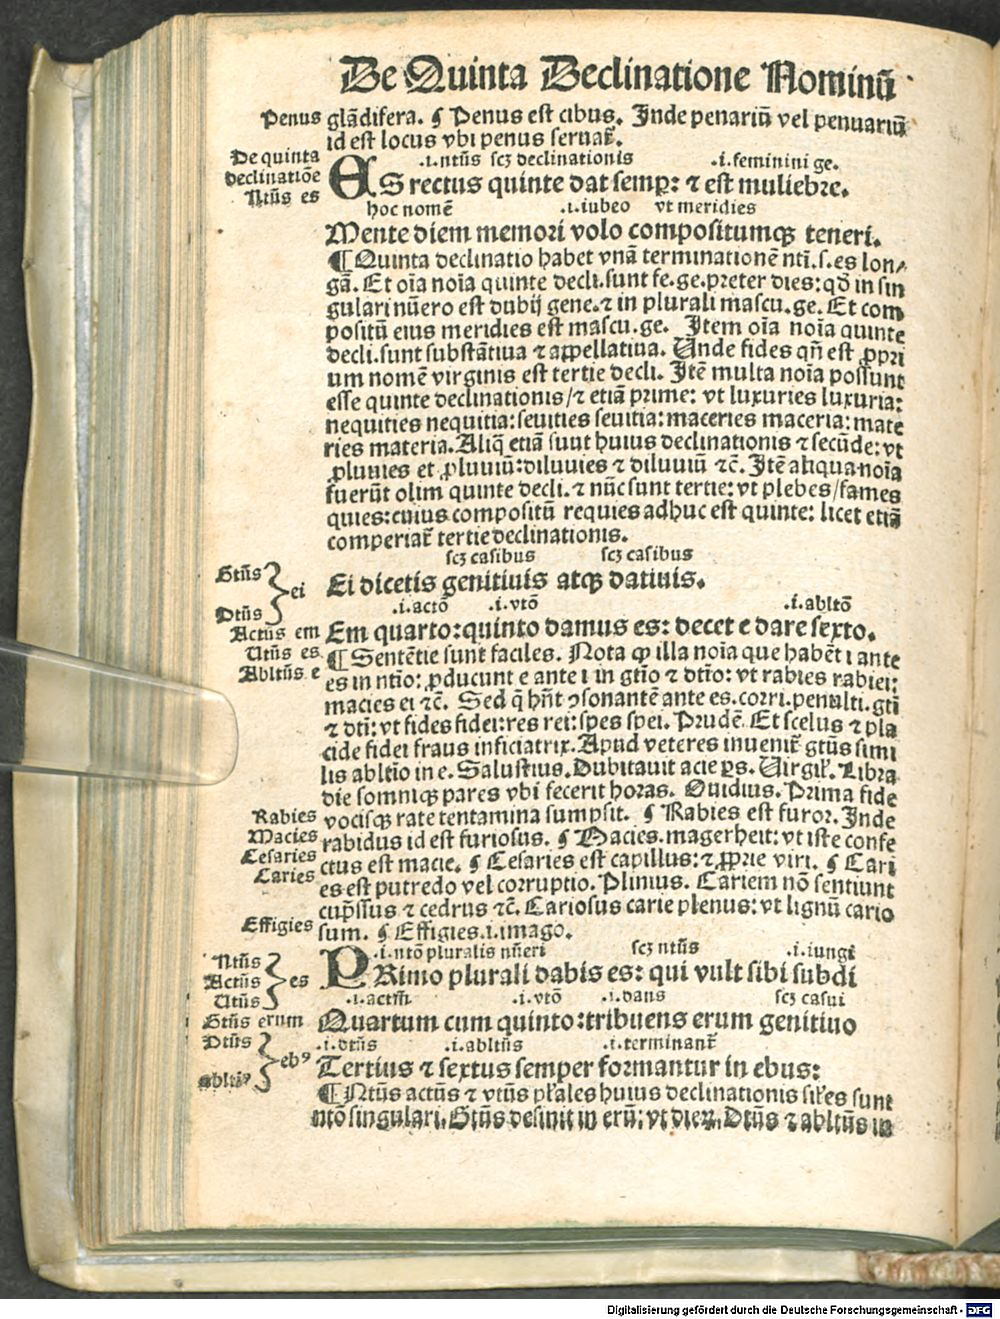 De Quinta Declinatione Nominū
Penus glādifera. ¶ Penus est cibus. Inde penariū vel penuariū
id est locus vbi penus seruat̄.
De quinta
declinatiōe
Ntūs es
.i.ntūs scꝫ declinationis .i.feminini ge.
ES rectus quinte dat semꝑ: ⁊ est muliebre.
hoc nomē .i.iubeo vt meridies
Mente diem memori volo compositumqꝫ teneri.
¶ Quinta declinatio habet vnā terminationē nti.s.es lon⸗
gā. Et oīa noīa quinte decli.sunt fe.ge.preter dies: qd̄ in sin
gulari nūero est dubij gene.⁊ in plurali mascu.ge. Et com
positū eius meridies est mascu.ge. Item oīa noīa quinte
decli.sunt substātiua ⁊ appellatiua. Unde fides qn̄ est ꝓpri
um nomē virginis est tertie decli. Itē multa noīa possunt
esse quinte declinationis/⁊ etiā prime: vt luxuries luxuria:
nequities nequitia: seuities seuitia: maceries maceria: mate
ries materia. Aliq̄ etiā sunt huius declinationis ⁊ secūde: vt
ꝓluuies et ꝓluuiū: diluuies ⁊ diluuiū ⁊c̄. Itē aliqua noīa
fuerūt olim quinte decli.⁊ nūc sunt tertie: vt plebes/fames
quies: cuius compositū requies adhuc est quinte: licet etiā
comperiat̄ tertie declinationis.
scꝫ casibus scꝫ casibus
Gtūs
Dtūs
ei
Ei dicetis genitiuis atqꝫ datiuis.
.i.actō .i.vtō .i.abltō
Actūs em
Utūs es
Abltūs e
Em quarto: quinto damus es: decet e dare sexto.
¶ Sentētie sunt faciles. Nota ꝙ illa noīa que habēt i ante
es in ntīo: ꝓducunt e ante i in gtīo ⁊ dtīo: vt rabies rabiei:
macies ei ⁊c̄. Sed q̄ hn̄t ꝯsonantē ante es.corri.penulti.gtī
⁊ dtī: vt fides fidei: res rei: spes spei. Prudē. Et scelus ⁊ pla
cide fidei fraus inficiatrix. Apud veteres inuenit̄ gtūs simi
lis abltīo in e. Salustius. Dubitauit acie ꝑs. Virgiƚ. Libra
die somniqꝫ pares vbi fecerit horas. Ouidius. Prima fide
Rabies
Macies
Cesaries
Caries
Effigies
vocisqꝫ rate tentamina sumpsit. ¶ Rabies est furor. Inde
rabidus id est furiosus. ¶ Macies. magerheit: vt iste confe
ctus est macie. ¶ Cesaries est capillus: ⁊ ꝓprie viri. ¶ Cari
es est putredo vel corruptio. Plinius. Cariem nō sentiunt
cup̄ssus ⁊ cedrus ⁊c̄. Cariosus carie plenus: vt lignū cario
sum. ¶ Effigies.i.imago.
.i.ntō pluralis nūeri scꝫ ntūs .i.iungi
Ntūs
Actūs
Utūs
es
PRimo plurali dabis es: qui vult sibi subdi
.i.actm̄ .i.vtō .i.dans scꝫ casui
Gtūs erum
Quartum cum quinto: tribuens erum genitiuo
Dtūs
abltꝰ
ebꝰ
.i.dtūs .i.abltūs .i.terminant̄
Tertius ⁊ sextus semper formantur in ebus:
¶ Ntūs actūs ⁊ vtūs pƚales huius declinationis siƚes sunt
ntō singulari. Gtūs desinit in erū: vt dieꝝ. Dtūs ⁊ abltūs in
Digitalisierung gefördert durch die Deutsche Forschungsgemeinschaft - DFG